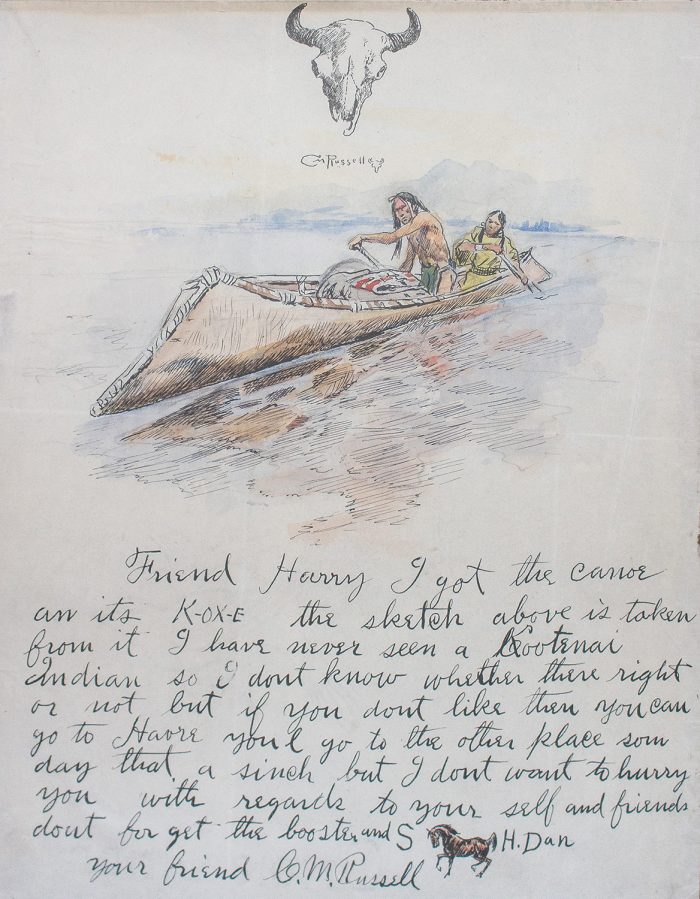 CM Russell
Friend Harry I got the canoe
an its K-OX-E the sketch above is taken
from it I have never seen a Kootenai
Indian so I dont know whether there right
or not but if you dont like them you can
go to Havre youl go to the other place som
day that a sinch but I dont want to hurry
you with regards to your self and friends
dont for get the booster and S H. Dan
your friend C. M. Russell